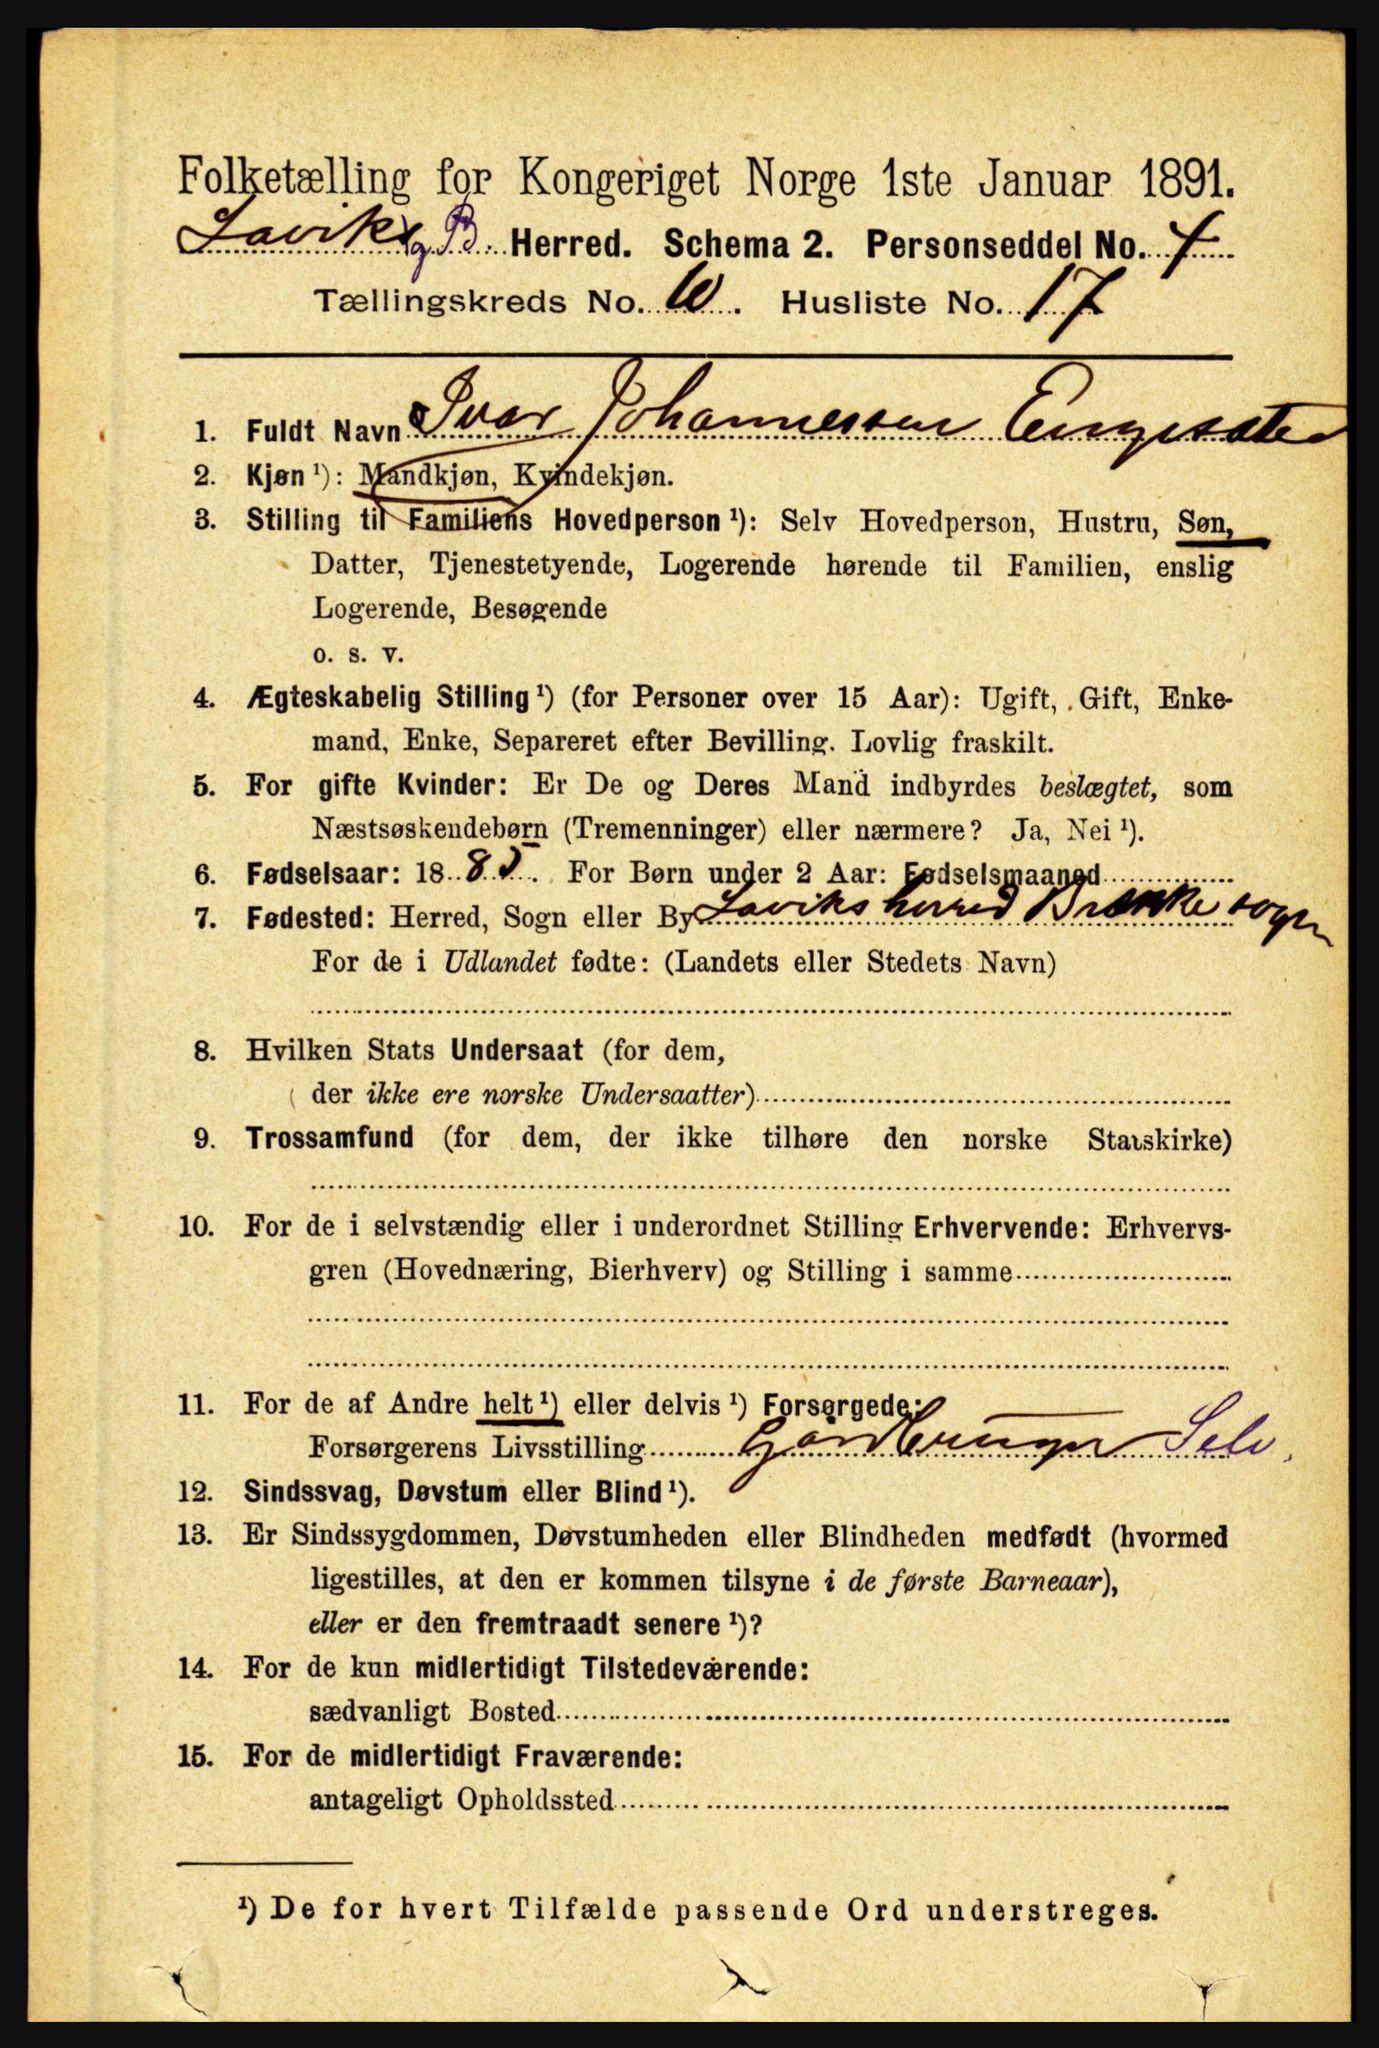 Folketælling for Kongeriget Norge 1ste Januar 1891.
Laviks og B. Herred. Schema 2. Personseddel No. 4
Tællingskreds No. 10. Husliste No. 17
1. Fuldt Navn Ivar Johannessen Engesæter
2. Kjøn ¹): Mandkjøn, Kvindekjøn.
3. Stilling til Familiens Hovedperson ¹): Selv Hovedperson, Hustru, Søn,
Datter, Tjenestetyende, Logerende hørende til Familien, enslig
Logerende, Besøgende
o. s. v.
4. Ægteskabelig Stilling ¹) (for Personer over 15 Aar): Ugift, Gift, Enke-
mand, Enke, Separeret efter Bevilling. Lovlig fraskilt.
5. For gifte Kvinder: Er De og Deres Mand indbyrdes beslægtet, som
Næstsøskendebørn (Tremenninger) eller nærmere? Ja, Nei ¹).
6. Fødselsaar: 1885. For Børn under 2 Aar: Fødselsmaaned
7. Fødested: Herred, Sogn eller By Laviks herred Brække sogn
For de i Udlandet fødte: (Landets eller Stedets Navn)
8. Hvilken Stats Undersaat (for dem,
der ikke ere norske Undersaatter)
9. Trossamfund (for dem, der ikke tilhøre den norske Statskirke)
10. For de i selvstændig eller i underordnet Stilling Erhvervende: Erhvervs-
gren (Hovednæring, Bierhverv) og Stilling i samme
11. For de af Andre helt ¹) eller delvis ¹) Forsørgede:
Forsørgerens Livsstilling Gaardbruger Selv.
12. Sindssvag, Døvstum eller Blind ¹).
13. Er Sindssygdommen, Døvstumheden eller Blindheden medfødt (hvormed
ligestilles, at den er kommen tilsyne i de første Barneaar),
eller er den fremtraadt senere ¹)?
14. For de kun midlertidigt Tilstedeværende:
sædvanligt Bosted
15. For de midlertidigt Fraværende:
antageligt Opholdssted
¹) De for hvert Tilfælde passende Ord understreges.